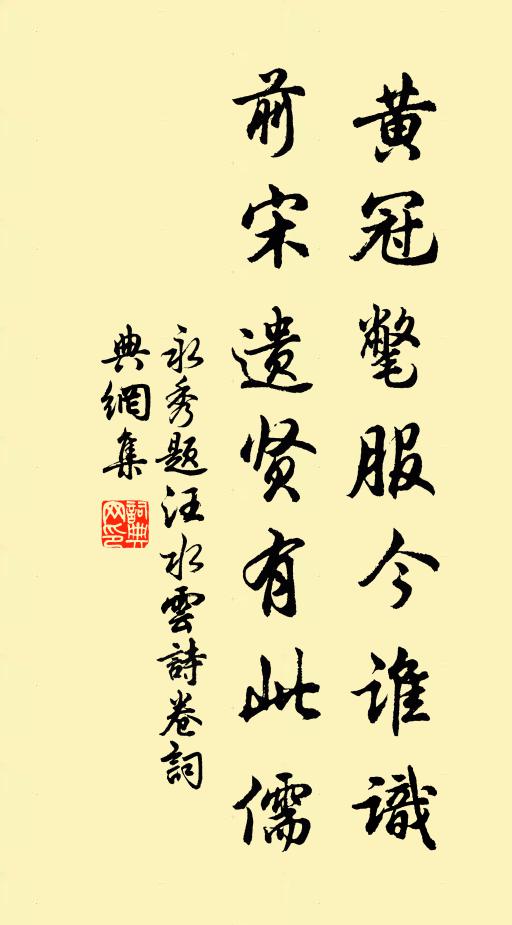 黄冠氅服今谁識
前宋遗贤有此儒
永秀题汪水雲詩卷詞
典網集
詞典
网印